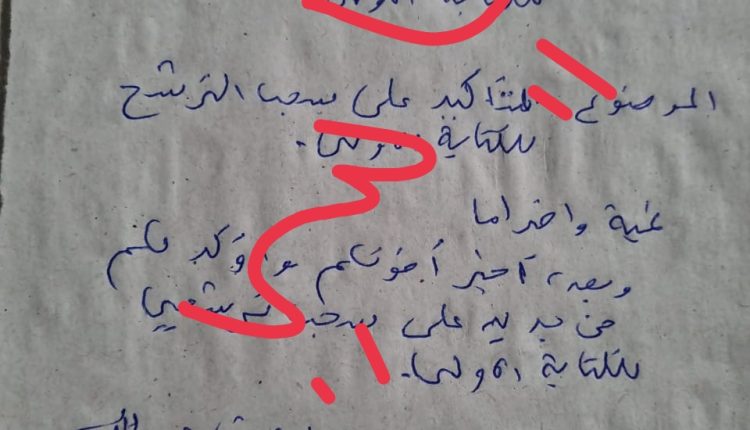 الموضوع: للتأكيد على سحب الترشح
للكتابة الأولى.
تحية واحتراما
وبعد، أخبر أخوتكم وأؤكد لكم
من جديد على سحب ترشيحي
للكتابة الأولى.